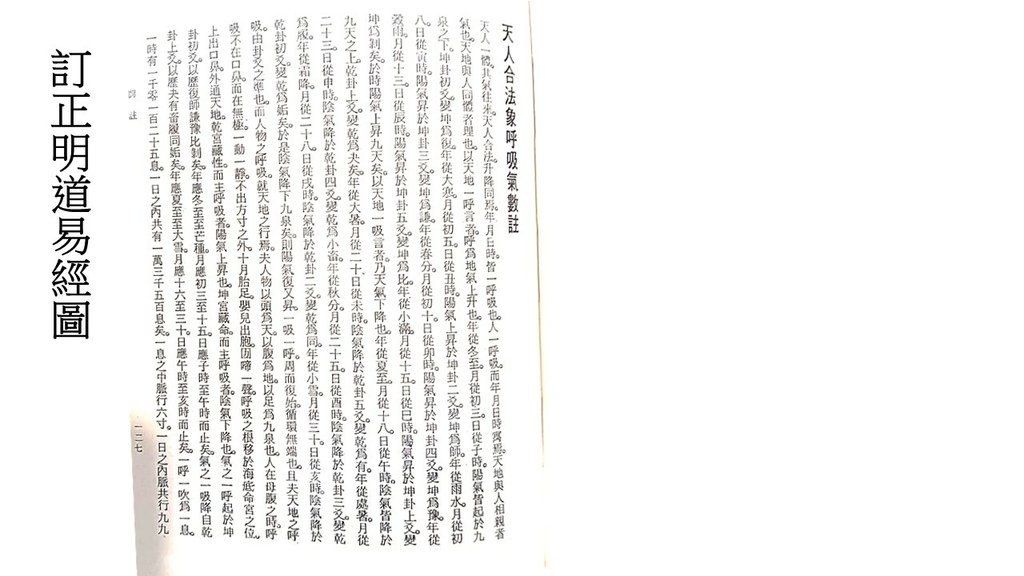 天人合法象呼吸氣數註
天人一體。其氣往來。天人合法。升降同焉。年月日時。皆一呼吸也。人一呼吸。而年月日時寓焉。天地與人相親者
氣也。天地與人同體者理也。以天地一呼言者。呼爲地氣上升也。年從冬至。月從初三日。從子時。陽氣皆起於九
泉之下。坤卦初爻變。坤爲復。年從大寒。月從初五日。從丑時。陽氣上昇於坤卦二爻。變坤爲師。年從雨水。月從初
八日。從寅時。陽氣昇於坤卦三爻。變坤爲謙。年從春分。月從初十日。從卯時。陽氣昇於坤卦四爻。變坤爲豫。年從
穀雨。月從十三日。從辰時。陽氣昇於坤卦五爻。變坤爲比。年從小滿。月從十五日。從巳時。陽氣昇於坤卦上爻。變
坤爲剝矣。於時陽氣上昇九天矣。以天地一吸言者。乃天氣下降也。年從夏至。月從十八日。從午時。陰氣皆降於
九天之上。乾卦上爻變。乾爲夬矣。年從大暑。月從二十日。從未時。陰氣降於乾卦五爻。變乾爲有。年從處暑。月從
二十三日。從申時。陰氣降於乾卦四爻。變乾爲小畜。年從秋分。月從二十五日。從酉時。陰氣降於乾卦三爻。變乾
爲履。年從霜降。月從二十八日。從戌時。陰氣降於乾卦二爻。變乾爲同。年從小雪。月從三十日。從亥時。陰氣降於
乾卦初爻。變乾爲姤矣。於是陰氣降下九泉矣。則陽氣復又昇。一吸一呼。周而復始。循環無端也。且夫天地之呼
吸。由卦爻之準也。而人物之呼吸。就天地之行焉。夫人物以頭爲天。以腹爲地。以足爲九泉也。人在母腹之時。呼
吸不在口鼻。而在無極。一動一靜。不出方寸之外。十月胎足。嬰兒出胞。囡啼一聲。呼吸之根。移於海底命宮之位。
上出口鼻。外通天地。乾宮藏性。而主呼吸者。陽氣上昇也。坤宮藏命。而主呼吸者。陰氣下降也。氣之一呼。起於坤
卦初爻。以歷復師謙豫比剝矣。年應冬至至芒種。月應初三至十五日。應子時至午時而止矣。氣之一吸。降自乾
卦上爻。以歷夬有畜履同姤矣。年應夏至至大雪。月應十六至三十日。應午時至亥時而止矣。一呼一吹爲一息。
一時有一千零一百二十五息。一日之內共有一萬三千五百息矣。一息之中脈行六寸。一日之內脈共行九九
註
一二七
訂正明道易經圖